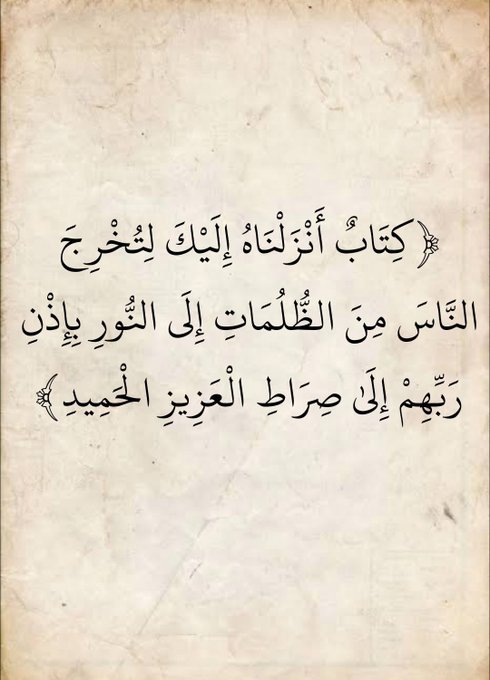 ﴿كِتَابٌ أَنْزَلْنَاهُ إِلَيْكَ لِتُخْرِجَ
النَّاسَ مِنَ الظُّلُمَاتِ إِلَى النُّورِ بِإِذْنِ
رَبِّهِمْ إِلَىٰ صِرَاطِ الْعَزِيزِ الْحَمِيدِ﴾